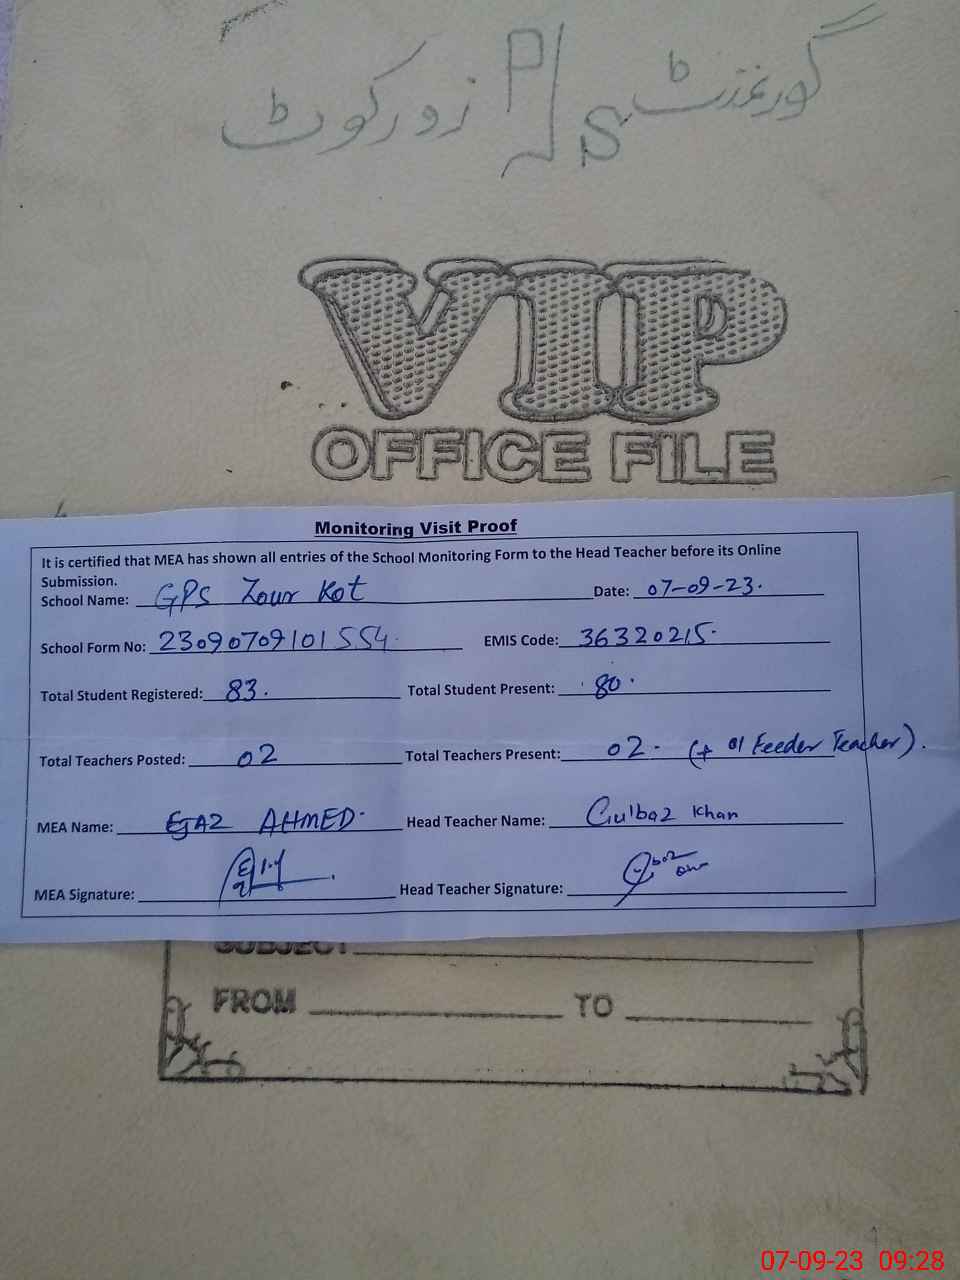 گورنمنٹ P/S زور کوٹ
VIP
OFFICE FILE
Monitoring Visit Proof
It is certified that MEA has shown all entries of the School Monitoring Form to the Head Teacher before its Online
Submission.
School Name: GPS Zour Kot Date: 07-09-23.
School Form No: 23090709101554. EMIS Code: 36320215.
Total Student Registered: 83. Total Student Present: 80.
Total Teachers Posted: 02 Total Teachers Present: 02. (+ 01 Feeder Teacher).
MEA Name: EJAZ AHMED. Head Teacher Name: Gulbaz Khan
MEA Signature: Head Teacher Signature:
SUBJECT
FROM TO
07-09-23 09:28